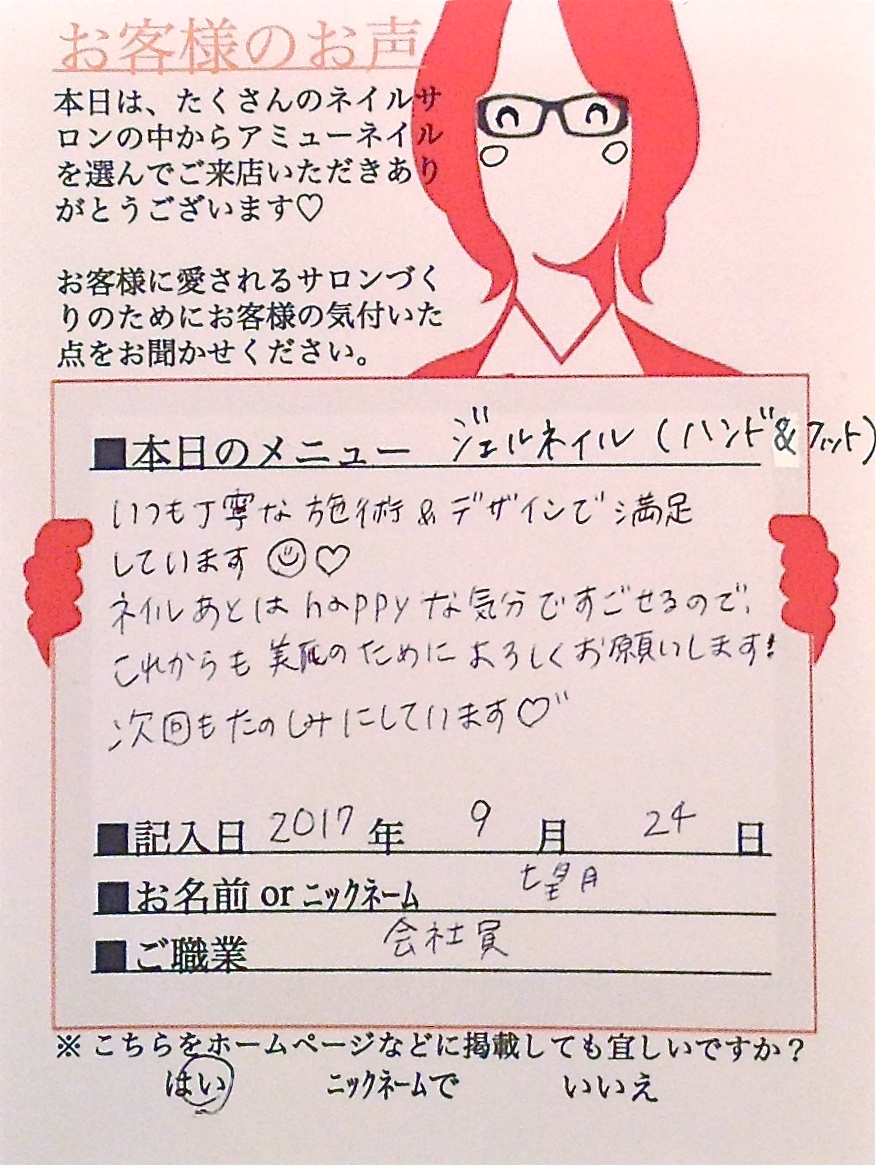 お客様のお声
本日は、たくさんのネイルサ
ロンの中からアミューネイル
を選んでご来店いただきあり
がとうございます♡
お客様に愛されるサロンづく
りのためにお客様の気付いた
点をお聞かせください。
■本日のメニュー ジェルネイル（ハンド&フット）
いつも丁寧な施術&デザインで満足
しています☺♡
ネイルあとはhappyな気分ですごせるので、
これからも美爪のためによろしくお願いします!
次回もたのしみにしています♡"
■記入日 2017 年 9 月 24 日
■お名前 or ニックネーム 望月
■ご職業 会社員
※ こちらをホームページなどに掲載しても宜しいですか?
はい ニックネームで いいえ